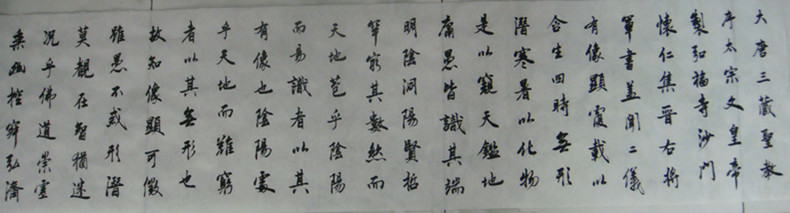 大唐三藏聖教
序太宗文皇帝
製弘福寺沙門
懷仁集晉右將
軍書蓋聞二儀
有像顯覆載以
含生四時無形
潛寒暑以化物
是以窺天鑑地
庸愚皆識其端
明陰洞陽賢哲
罕窮其數然而
天地苞乎陰陽
而易識者以其
有像也陰陽處
乎天地而難窮
者以其無形也
故知像顯可徵
雖愚不惑形潛
莫覩在智猶迷
況乎佛道崇虛
乘幽控寂弘濟